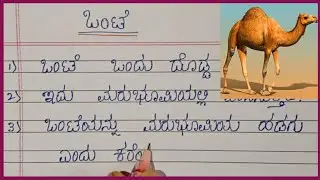 ಒಂಟೆ
1) ಒಂಟೆ ಒಂದು ದೊಡ್ಡ
2) ಇದು ಮರುಭೂಮಿಯಲ್ಲಿ
3) ಒಂಟೆಯನ್ನು ಮರುಭೂಮಿಯ ಹಡಗು
ಎಂದು ಕರೆ